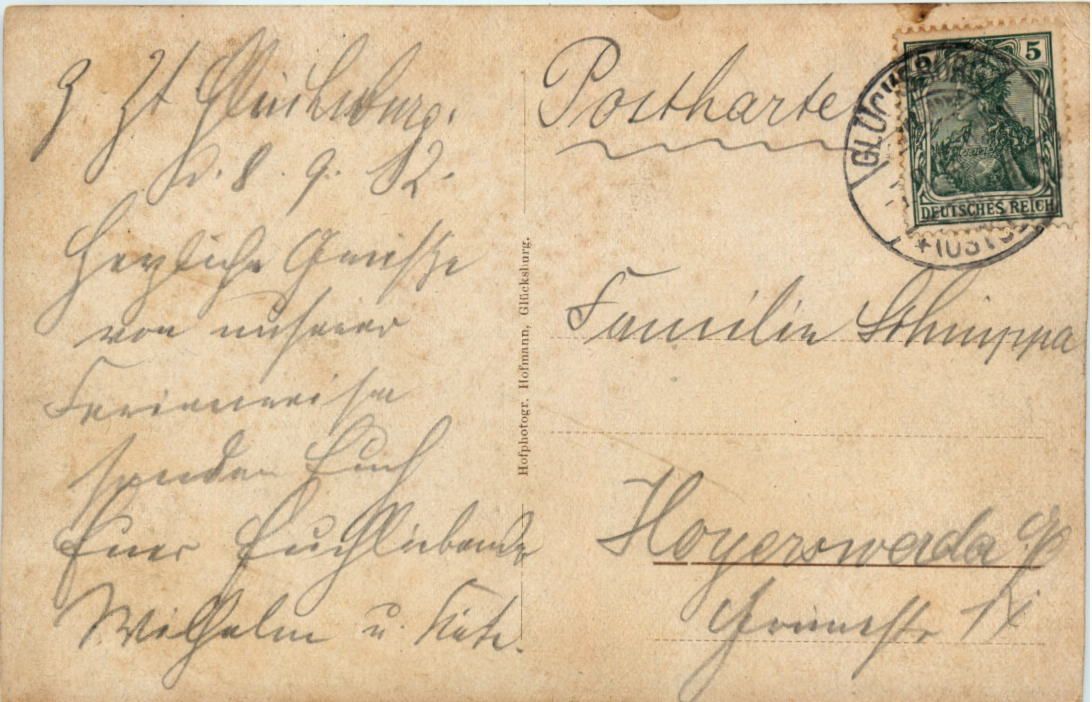 z Zt Glücksburg.
d. 8. 9. 12.
Herzliche Grüsse
von unserer
Ferienreise
senden Euch
Euer Euchliebende
Wilhelm u. Käte.
Hofphotogr. Hofmann, Glücksburg.
Postkarte
5
DEUTSCHES REICH
GLÜCKSBURG
* (OSTSEE
Familie Schuppa
Hoyerswerda